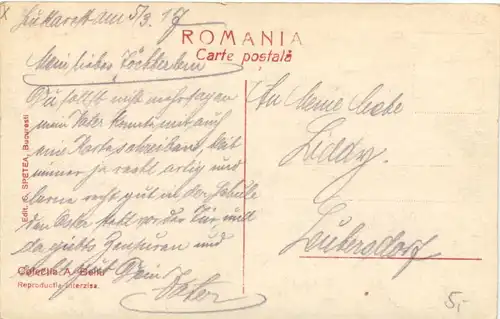 Bukarest den 5/3. 17
ROMANIA
Carte postală
Mein liebes Töchterlein
Du sollst nicht mehr sagen
mein Vater konnte mir auch
eine Karte schreiben. Sei
immer ja recht artig und
lerne recht gut in der Schule
den Oster steht vor der Tür und
da giebts Zensuren und
Dein
Vater
An Meine liebe
Liddy.
Leubersdorf
Edit. G. SPETEA, București
Colecția A. Bellu
Reproducția interzisa.
5,-